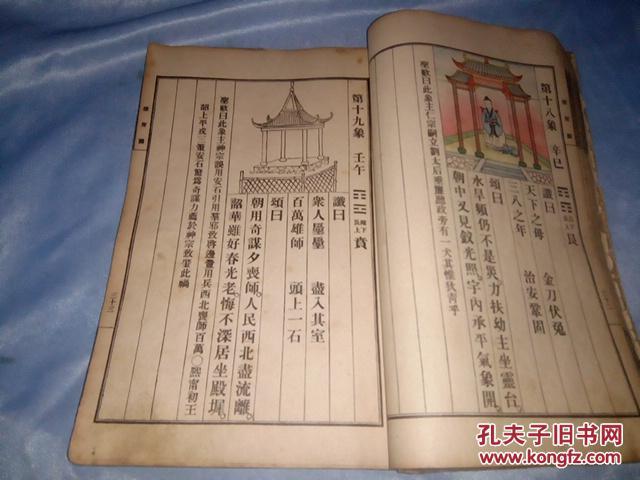 第十八象 辛巳 艮下艮上 艮
讖曰
天下之母 金刀伏兔
三八之年 治安鞏固
頌曰
水旱頻仍不是災。力扶幼主坐靈台。
朝中又見釵光照。宇內承平氣象開。
聖歎曰此象主仁宗嗣立劉太后垂簾聽政旁有一犬其惟狄青乎
二十二
第十九象 壬午 離下艮上 賁
讖曰
眾人囂囂 盡入其室
百萬雄師 頭上一石
頌曰
朝用奇謀夕喪師。人民西北盡流離。
韶華雖好春光老。悔不深居坐殿墀。
聖歎曰此象主神宗誤用安石引用羣邪致啓邊釁用兵西北喪師百萬〇熙甯初王
韶上平戎三策安石驚為奇謀力薦於神宗致肇此禍
二十三
孔夫子旧书网
KONGFZ.COM